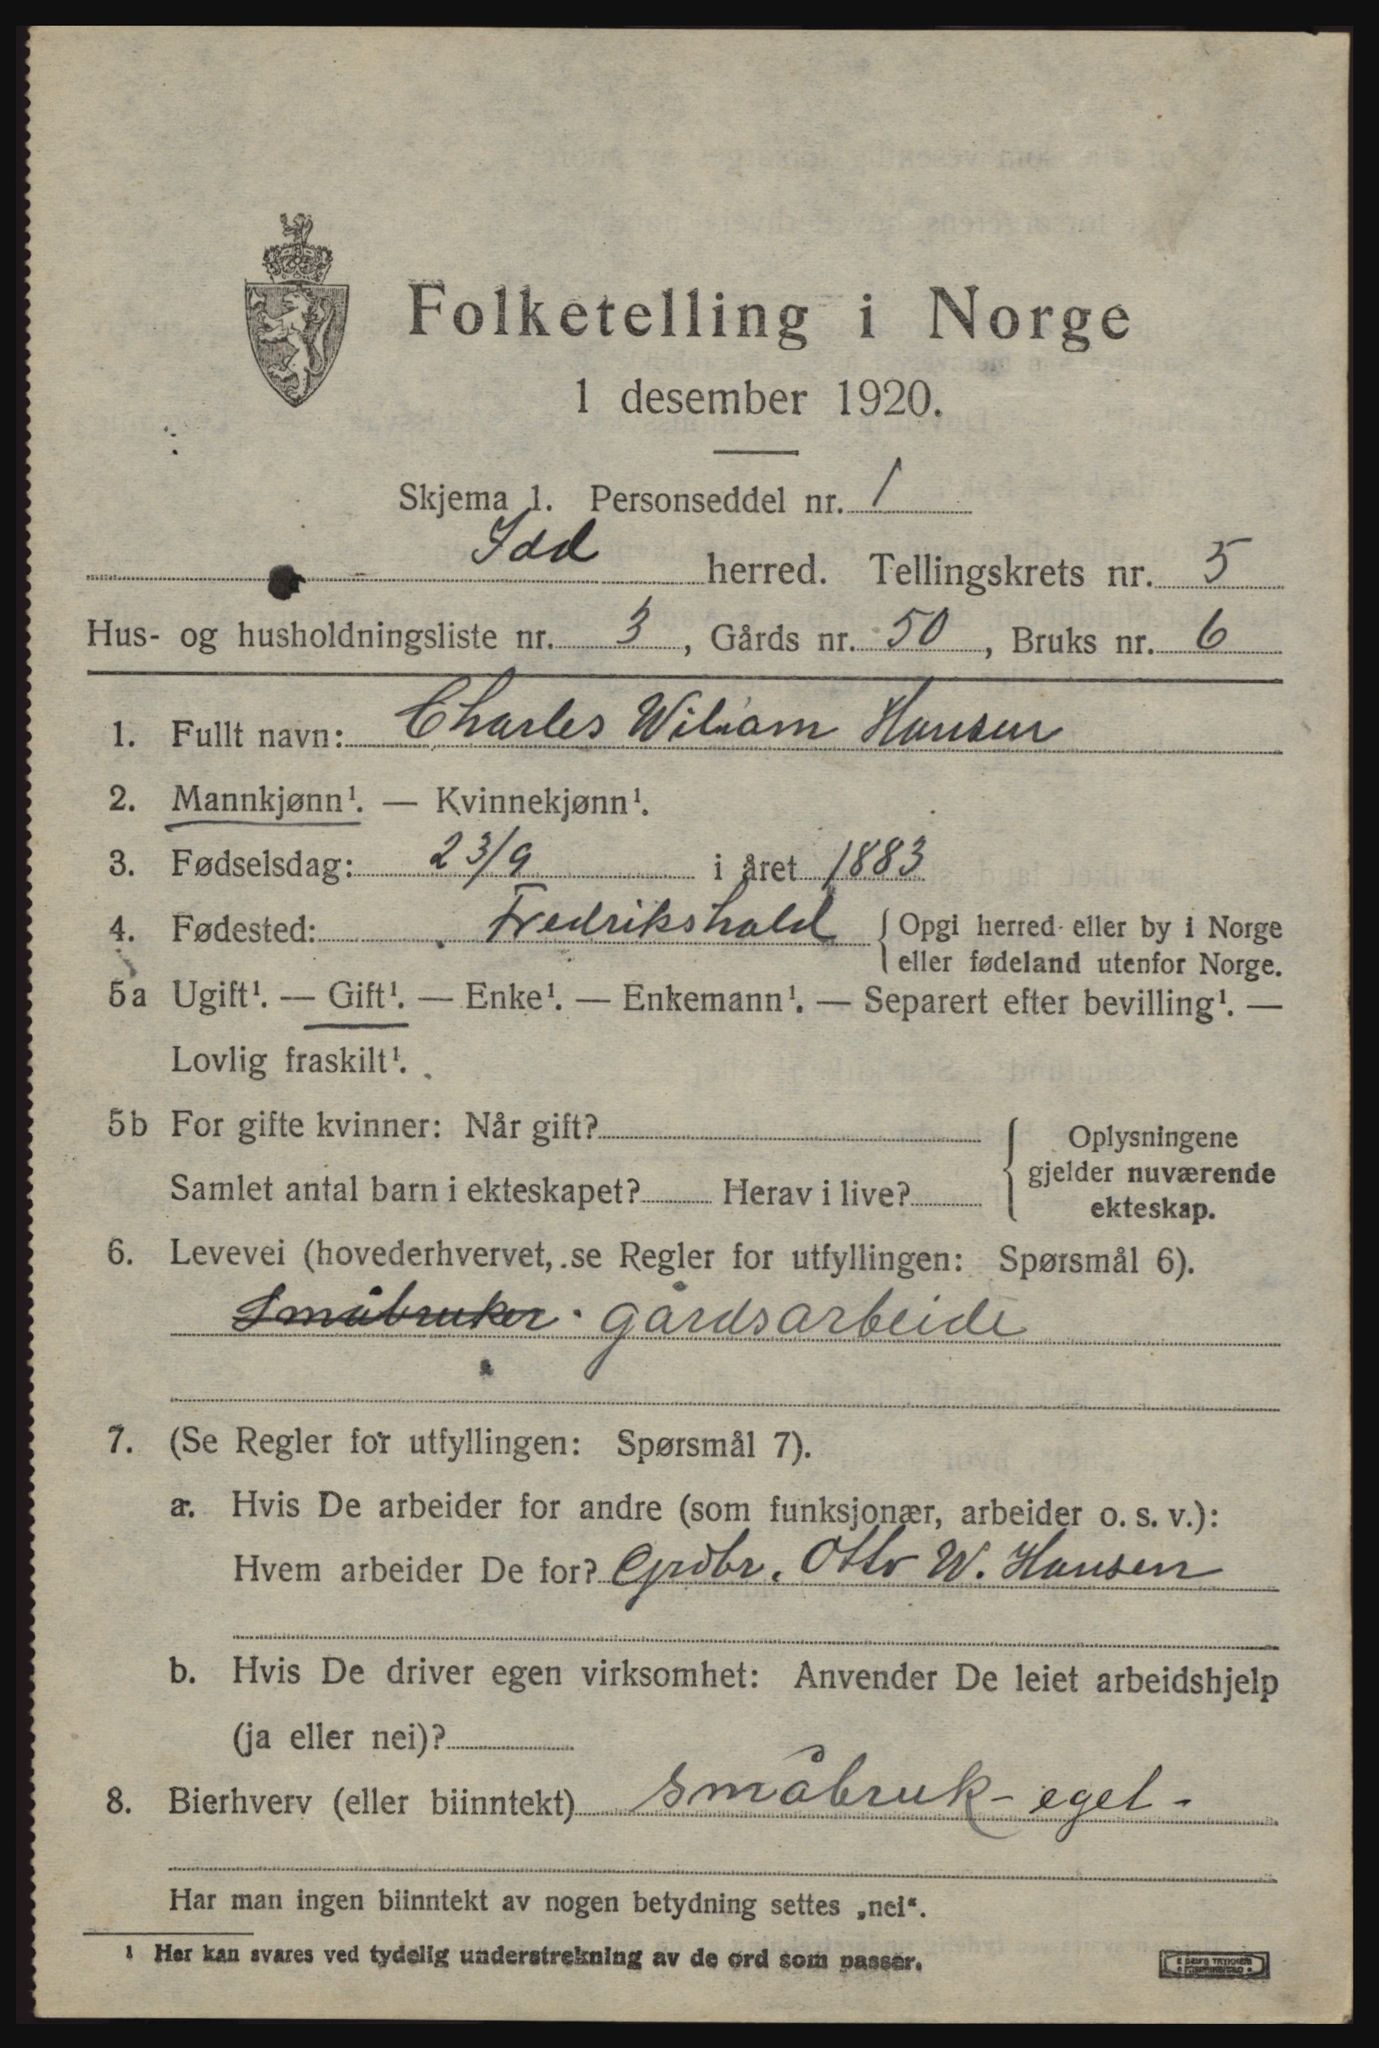 Folketelling i Norge
1 desember 1920.
Skjema 1. Personseddel nr. 1
Idd herred. Tellingskrets nr. 5
Hus- og husholdningsliste nr. 3, Gårds nr. 50, Bruks nr. 6
1. Fullt navn: Charles Wiliam Hansen
2. Mannkjønn¹. — Kvinnekjønn¹.
3. Fødselsdag: 23/9 i året 1883
4. Fødested: Fredrikshald {Opgi herred eller by i Norge
eller fødeland utenfor Norge.
5a Ugift¹. — Gift¹. — Enke¹. — Enkemann¹. — Separert efter bevilling¹. —
Lovlig fraskilt¹.
5b For gifte kvinner: Når gift?
Samlet antal barn i ekteskapet? Herav i live?
Oplysningene
gjelder nuværende
ekteskap.
6. Levevei (hovederhvervet, se Regler for utfyllingen: Spørsmål 6).
Småbruker. gårdsarbeide
7. (Se Regler for utfyllingen: Spørsmål 7).
a. Hvis De arbeider for andre (som funksjonær, arbeider o. s. v.):
Hvem arbeider De for? Grdbr. Otto W. Hansen
b. Hvis De driver egen virksomhet: Anvender De leiet arbeidshjelp
(ja eller nei)?
8. Bierhverv (eller biinntekt) småbruk - eget -
Har man ingen biinntekt av nogen betydning settes „nei“.
¹ Her kan svares ved tydelig understrekning av de ord som passer.